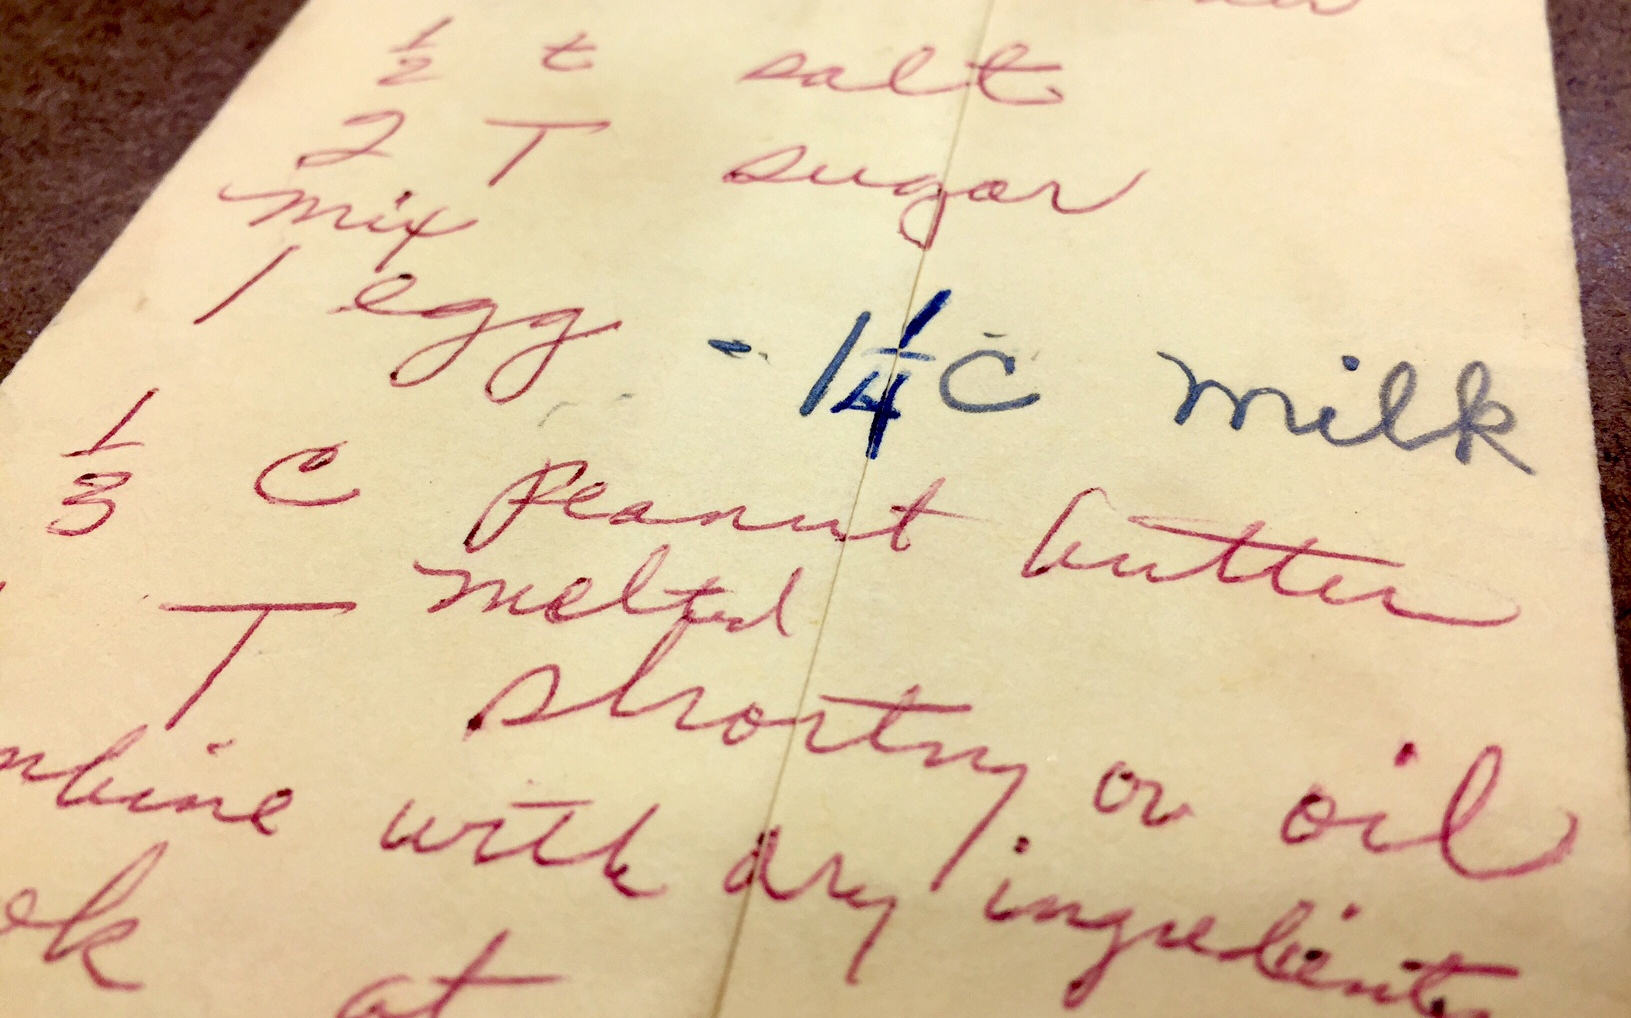 ½ t salt
2 T sugar
mix
1 egg - 1¼ C milk
⅓ C peanut butter
melted
T shortng or oil
mbine with dry ingredients
ok at